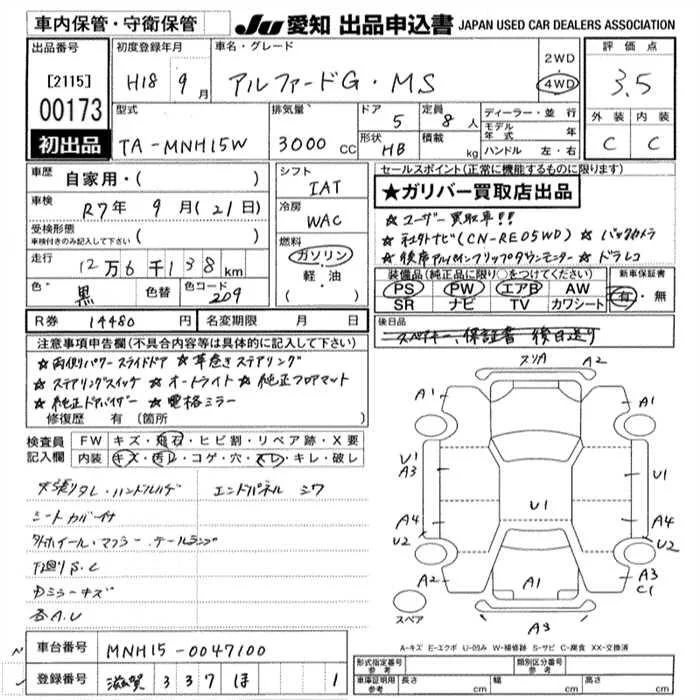 車内保管・守衛保管 JU 愛知 出品申込書 JAPAN USED CAR DEALERS ASSOCIATION
出品番号 [2115] 00173 初出品
初度登録年月 H18 9月
車名・グレード アルファードG・MS 2WD 4WD
評価点 3.5
外装 C 内装 C
型式 TA-MNH15W 排気量 3000cc
ドア 5 定員 8人 形状 HB 積載 kg
ディーラー・並行 モデル年式 年 ハンドル 左・右
車歴 自家用・( )
車検 R7年 9月(21日)
受検形態 車検付きのみ記入して下さい ( )
走行 12万6千138km
色 黒 色替 色コード 209
シフト IAT
冷房 WAC
燃料 ガソリン 軽・油
セールスポイント(正常に機能するものに限ります)
★ガリバー買取店出品
★ユーザー買取車!!
★社外ナビ(CN-RE05WD) ★バックカメラ
★後席アルパインフリップダウンモニター ★ドラレコ
装備品(純正品に限り○をつけてください) 新車保証書
PS PW エアB AW 有・無
SR ナビ TV カワシート
R券 14480円 名変期限 月 日
後日品 スペアキー、保証書 後日送り
注意事項申告欄(不具合内容等は具体的に記入して下さい)
★両側パワースライドドア ★革巻きステアリング
★ステアリングスイッチ ★オートライト ★純正フロアマット
★純正ドアバイザー ★電格ミラー
修復歴 有(箇所
検査員記入欄 FW キズ・飛石・ヒビ割・リペア跡・X要
内装 キズ・汚レ・コゲ・穴・スレ・キレ・破レ
天張りタレ・ハンドルハゲ エンドパネル シワ
シートカバー付
外ホイール・マフラー・テールランプ
下廻りS.C
Dミラーキズ
各A.U
スリA A2
A1 A1
U1 A3 U1
U1
A4 U2 A4 U2
A2 A1 A3 C1
A3
スペア
A-キズ E-エクボ U-凹み W-補修跡 S-サビ C-腐食 XX-交換済
車台番号 MNH15-0047100
登録番号 滋賀 337 ほ 1
形式指定番号 参考 類別区分番号 参考
車庫証明用 参考 長さ cm 幅 cm 高さ cm